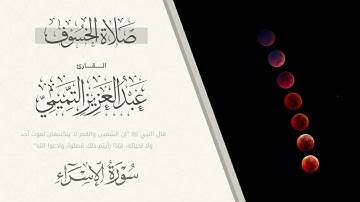 صلاة الخسوف
القارئ
عبد العزيز التميمي
قال النبي ﷺ "إن الشمس والقمر لا ينكسفان لموت أحد
ولا لحياته، فإذا رأيتم ذلك فصلوا، وادعوا الله"
سورة الإسراء